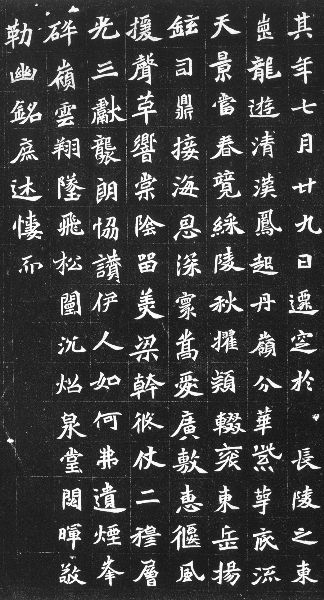 其年七月廿九日遷窆於 長陵之東
崗龍遊清漢鳳起丹嶺分華紫萼底流
天景當春競綵陵秋擢穎輟衮東岳揚
鉉司鼎接海恩深寮嵩愛廣敷惠偃風
援聲草響棠陰留美梁幹攸仗二穆層
光三獻襲朗協讚伊人如何弗遺煙峯
碎嶺雲翔墜飛松闈沉炤泉堂閟暉敬
勒幽銘庶述悽而